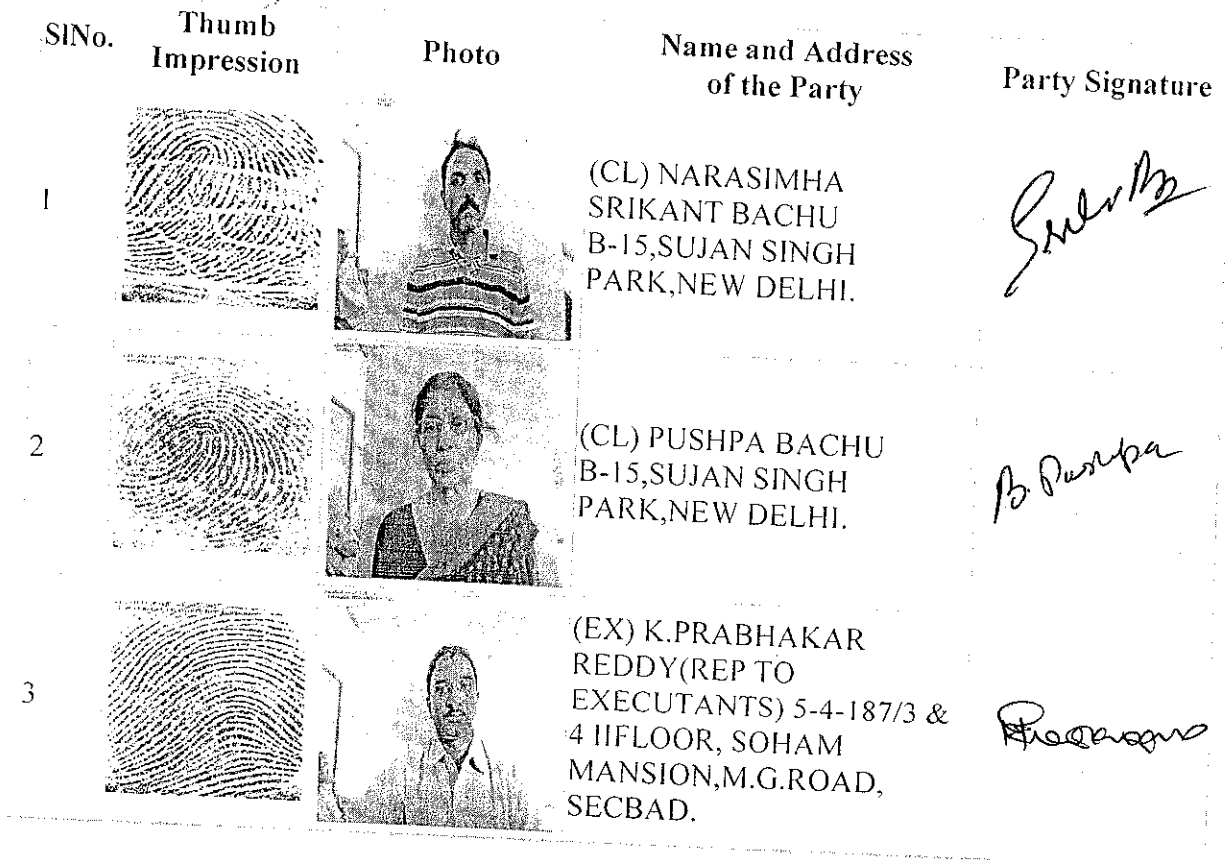 SlNo.
Thumb
Impression
Photo
Name and Address
of the Party
Party Signature
1
(CL) NARASIMHA
SRIKANT BACHU
B-15,SUJAN SINGH
PARK,NEW DELHI.
2
(CL) PUSHPA BACHU
B-15,SUJAN SINGH
PARK,NEW DELHI.
B. Pushpa
3
(EX) K.PRABHAKAR
REDDY(REP TO
EXECUTANTS) 5-4-187/3 &
4 IIFLOOR, SOHAM
MANSION,M.G.ROAD,
SECBAD.